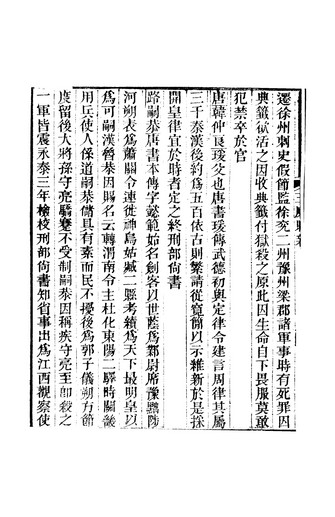 遷徐州刺史假節監徐兗二州豫州梁郡諸軍事時有死罪囚
典籤獄活之因收典籤付獄殺之原此囚生命自下畏服莫敢
犯禁卒於官
唐韓仲良瑗父也唐書瑗傳武德初與定律令建言周律其屬
三千秦漢後約爲五百依古則繁請從寬簡以示維新於是採
開皇律宜於時者定之終刑部尚書
路嗣恭唐書本傳字懿範始名劍客以世蔭爲鄴尉席豫黜陟
河朔表爲蕭關令連徙神烏姑臧二縣考績爲天下最明皇以
爲可嗣漢魯恭因賜名云轉渭南令主杜化東陽二驛時關畿
用兵使人係道嗣恭儲具有素而民不擾後爲郭子儀朔方節
度留後大將孫守亮驕蹇不受制嗣恭因稱疾守亮至卽殺之
一軍皆震永泰三年檢校刑部尚書知省事出爲江西觀察使